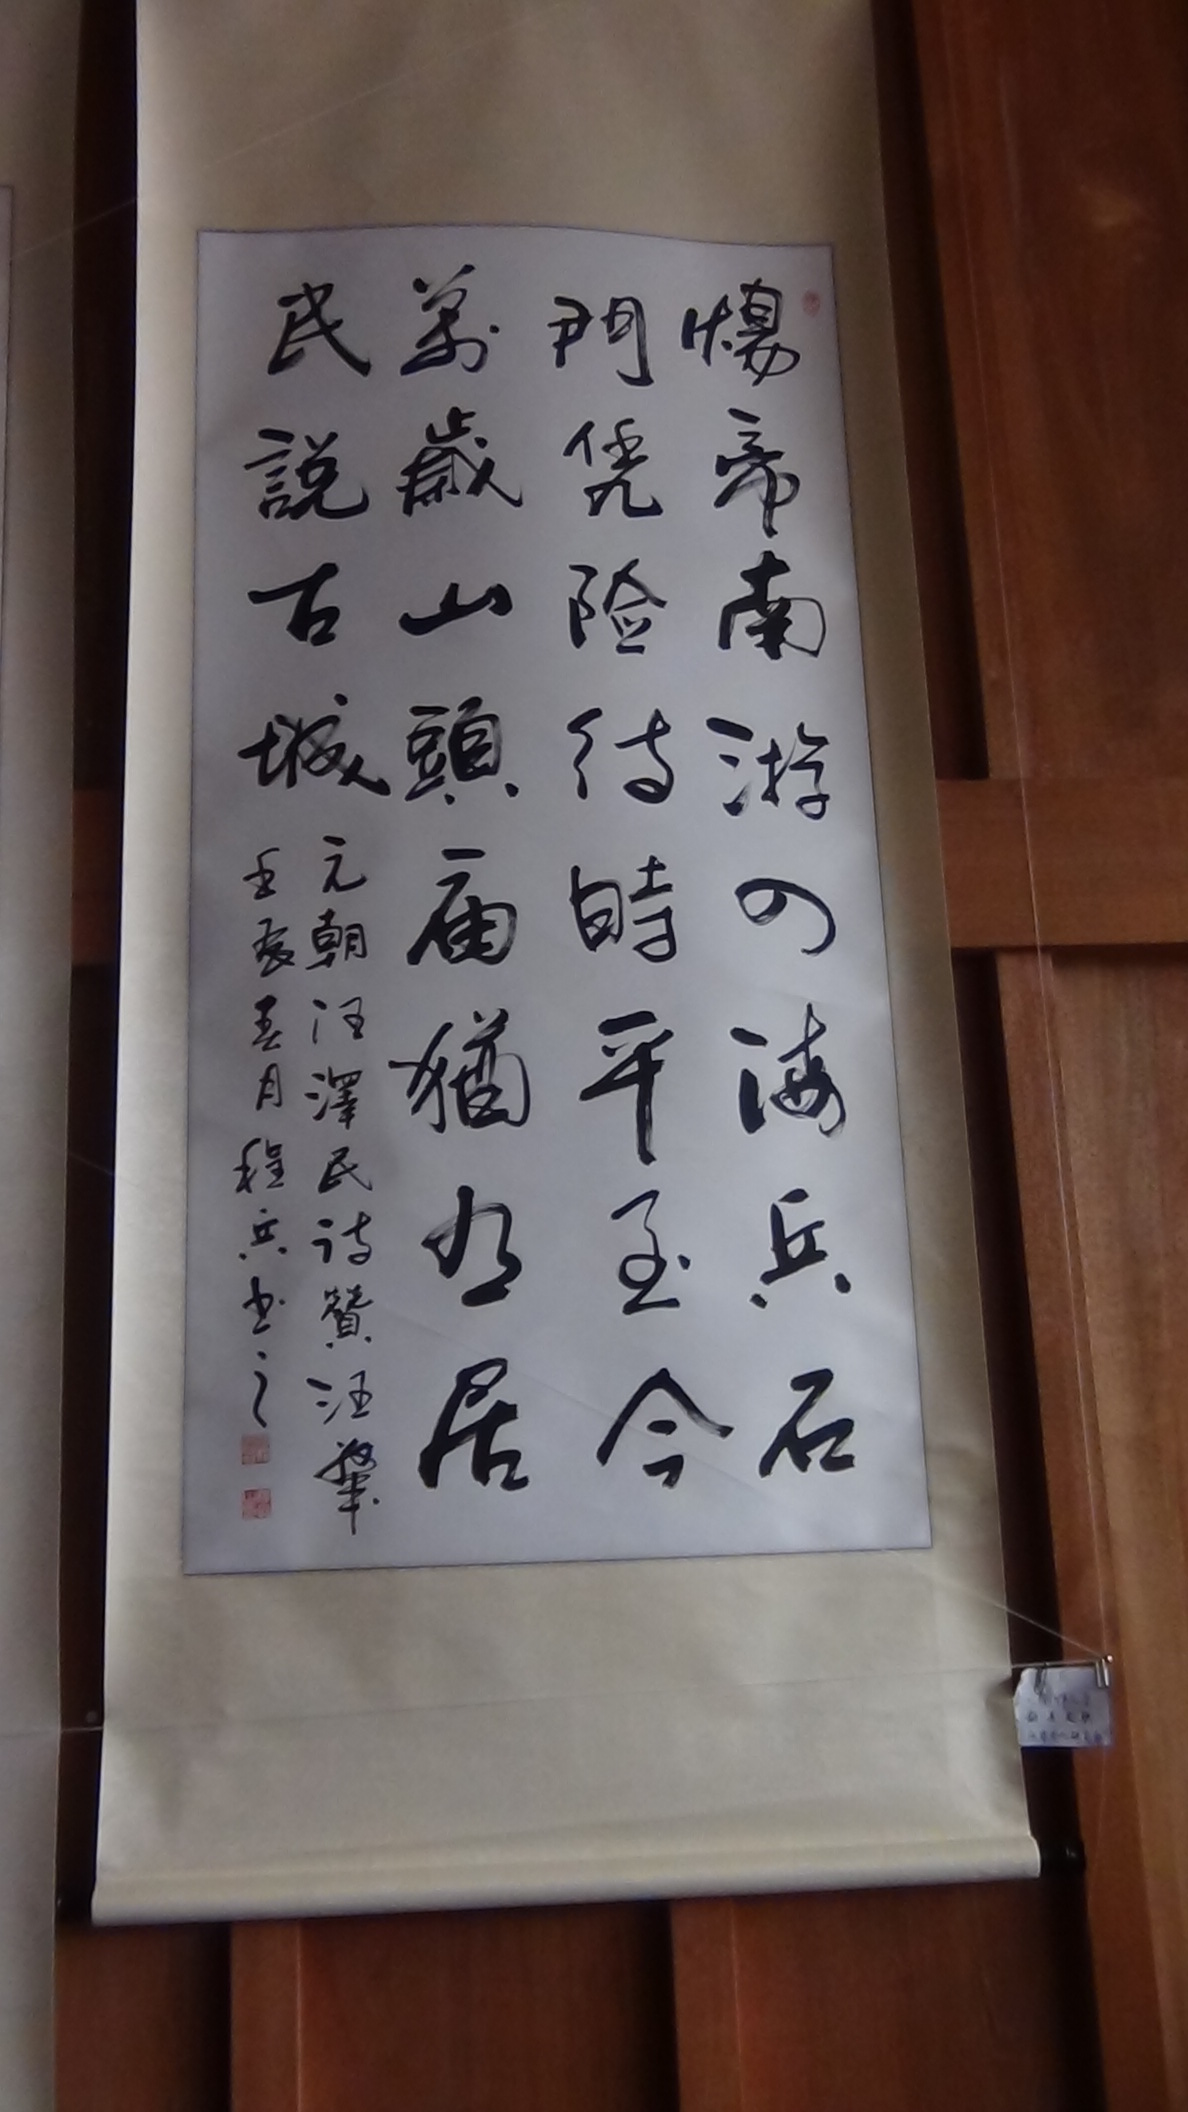 煬帝南游四海兵石
門凭险待時平至今
萬歲山頭廟猶有居
民説古城
元朝汪澤民詩贊汪華
壬辰春月程兵书之